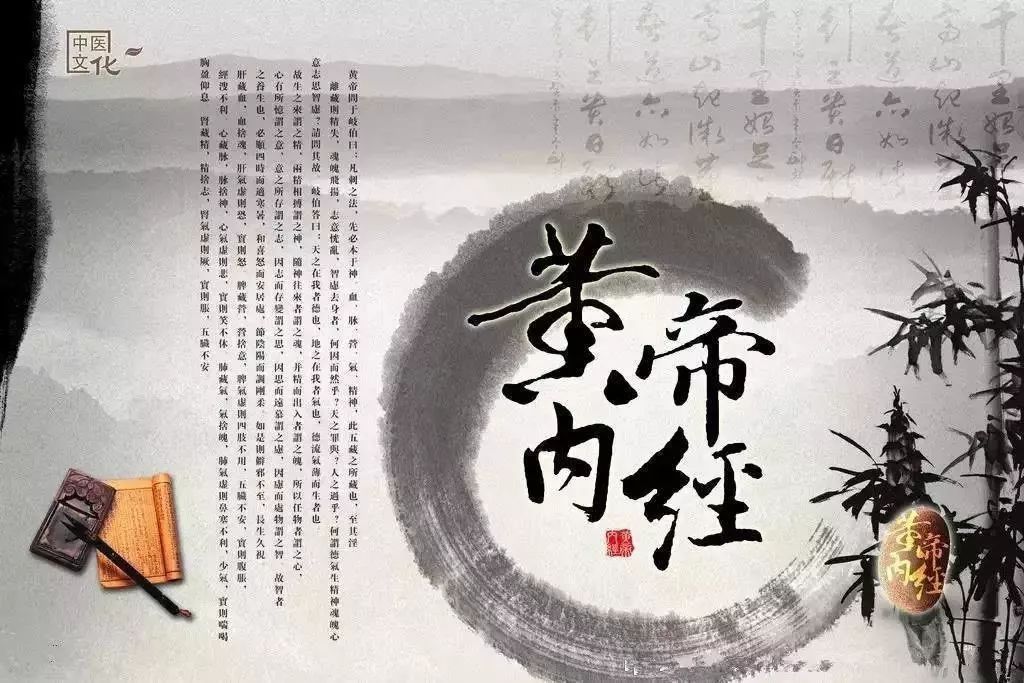 中医
文化
黄帝問于岐伯曰:凡刺之法,先必本于神、血、脉、營、氣、精神,此五藏之所藏也,至其淫
離藏則精失,魂魄飛揚,志意恍亂,智慮去身者,何因而然乎?天之罪與?人之過乎?何謂德氣生精神魂魄心
意志思智慮?請問其故 岐伯答曰:天之在我者德也,地之在我者氣也,德流氣薄而生者也
故生之來謂之精,兩精相搏謂之神,隨神往來者謂之魂,并精而出入者謂之魄,所以任物者謂之心,
心有所憶謂之意,意之所存謂之志,因志而存變謂之思,因思而遠慕謂之慮,因慮而處物謂之智 故智者
之養生也,必順四時而適寒暑,和喜怒而安居處,節陰陽而調剛柔 如是則僻邪不至,長生久視
肝藏血,血捨魂,肝氣虛則恐,實則怒 脾藏營,營捨意,脾氣虛則四肢不用,五臟不安,實則腹脹,
經溲不利 心藏脉,脉捨神,心氣虛則悲,實則笑不休 肺藏氣,氣捨魄,肺氣虛則鼻塞不利,少氣,實則喘喝
胸盈仰息 腎藏精,精捨志,腎氣虛則厥,實則脹,五臟不安
黄帝
内經
黄帝
内經